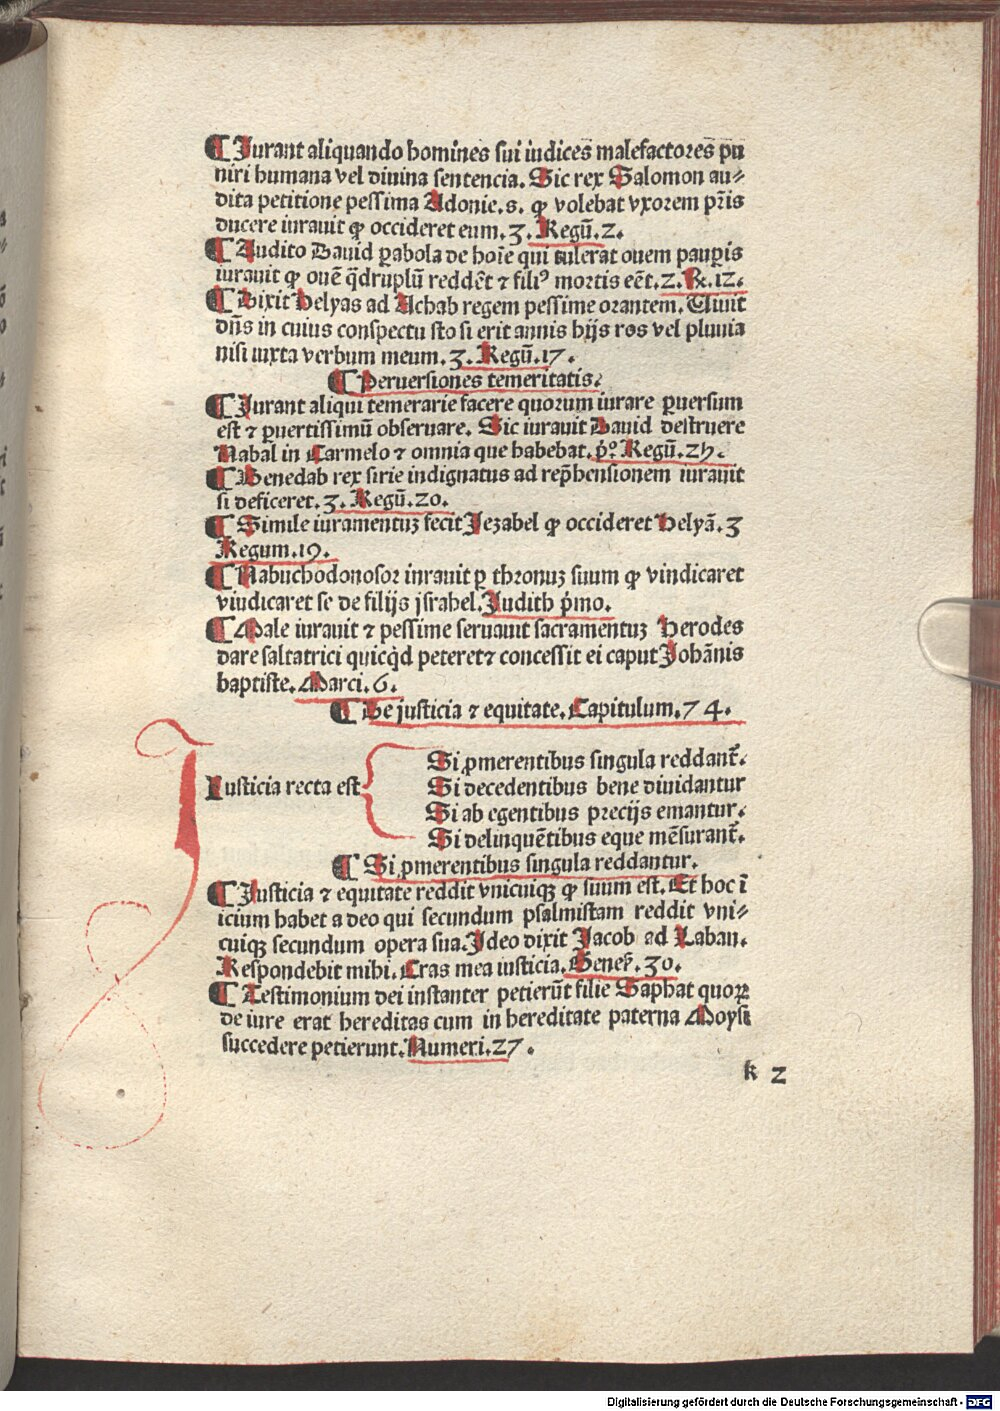 ¶ Jurant aliquando homines sui iudices malefactores pu
niri humana vel diuina sentencia. Sic rex Salomon au⸗
dita petitione pessima Adonie.s. ꝙ volebat vxorem pr̃is
ducere iurauit ꝙ occideret eum. 3. Regũ. 2.
¶ Audito Dauid ꝑabola de hoĩe qui tulerat ouem pauꝑis
iurauit ꝙ ouẽ q̃druplũ reddẽt ⁊ filiꝰ mortis eẽt. 2. Rx. 12.
¶ Dixit Helyas ad Achab regem pessime orantem. Uiuit
dñs in cuius conspectu sto si erit annis hijs ros vel pluuia
nisi iuxta verbum meum. 3. Regũ. 17.
¶ Peruersiones temeritatis.
¶ Jurant aliqui temerarie facere quorum iurare ꝑuersum
est ⁊ ꝑuertissimũ obseruare. Sic iurauit Dauid destruere
Nabal in Carmelo ⁊ omnia que habebat. p̾º. Regũ. 25.
¶ Benedab rex sirie indignatus ad rep̃hensionem iurauit
si deficeret. 3. Regũ. 20.
¶ Simile iuramentuꝫ fecit Jezabel ꝙ occideret Helyã. 3
Regum. 19.
¶ Nabuchodonosor inrauit ꝑ thronuꝫ suum ꝙ vindicaret
viudicaret se de filijs jsrahel. Judith p̾mo.
¶ Male iurauit ⁊ pessime seruauit sacramentuꝫ Herodes
dare saltatrici quicq̾d peteret ⁊ concessit ei caput Johãnis
baptiste. Marci. 6.
¶ De justicia ⁊ equitate. Capitulum. 74.
Si ꝓmerentibus singula reddant̃.
Iusticia recta est
Si decedentibus bene diuidantur
Si ab egentibus precijs emantur.
Si delinquẽtibus eque mẽsurant̃.
¶ Si ꝓmerentibus singula reddantur.
¶ Justicia ⁊ equitate reddit vnicuiqꝫ ꝙ suum est. Et hoc ĩ
icium habet a deo qui secundum psalmistam reddit vni⸗
cuiqꝫ secundum opera sua. Jdeo dixit Jacob ad Laban.
Respondebit mihi. Cras mea iusticia. Geneẜ. 30.
¶ Testimonium dei instanter petierũt filie Saphat quoꝝ
de iure erat hereditas cum in hereditate paterna Moysi
succedere petierunt. Numeri. 27.
k 2
Digitalisierung gefördert durch die Deutsche Forschungsgemeinschaft - DFG